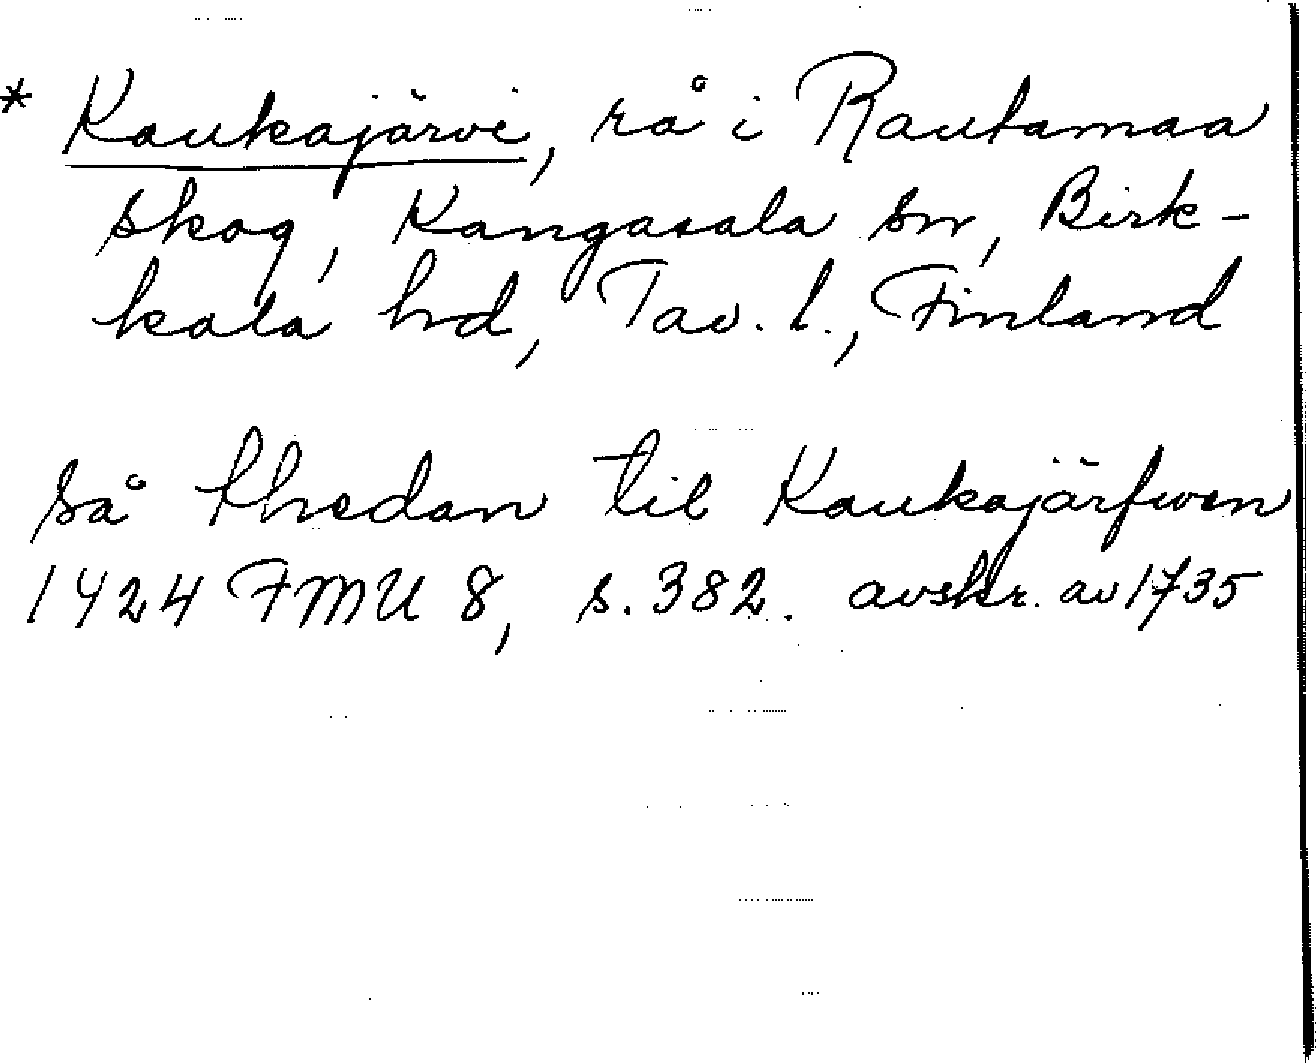 * Kaukajärvi, rå i Rautamaa
skog, Kangasala sn, Birk-
kala hd, Tav. l., Finland
så thedan til Kaukajärfwen
1424 FMU 8, s. 382. avskr. av 1735